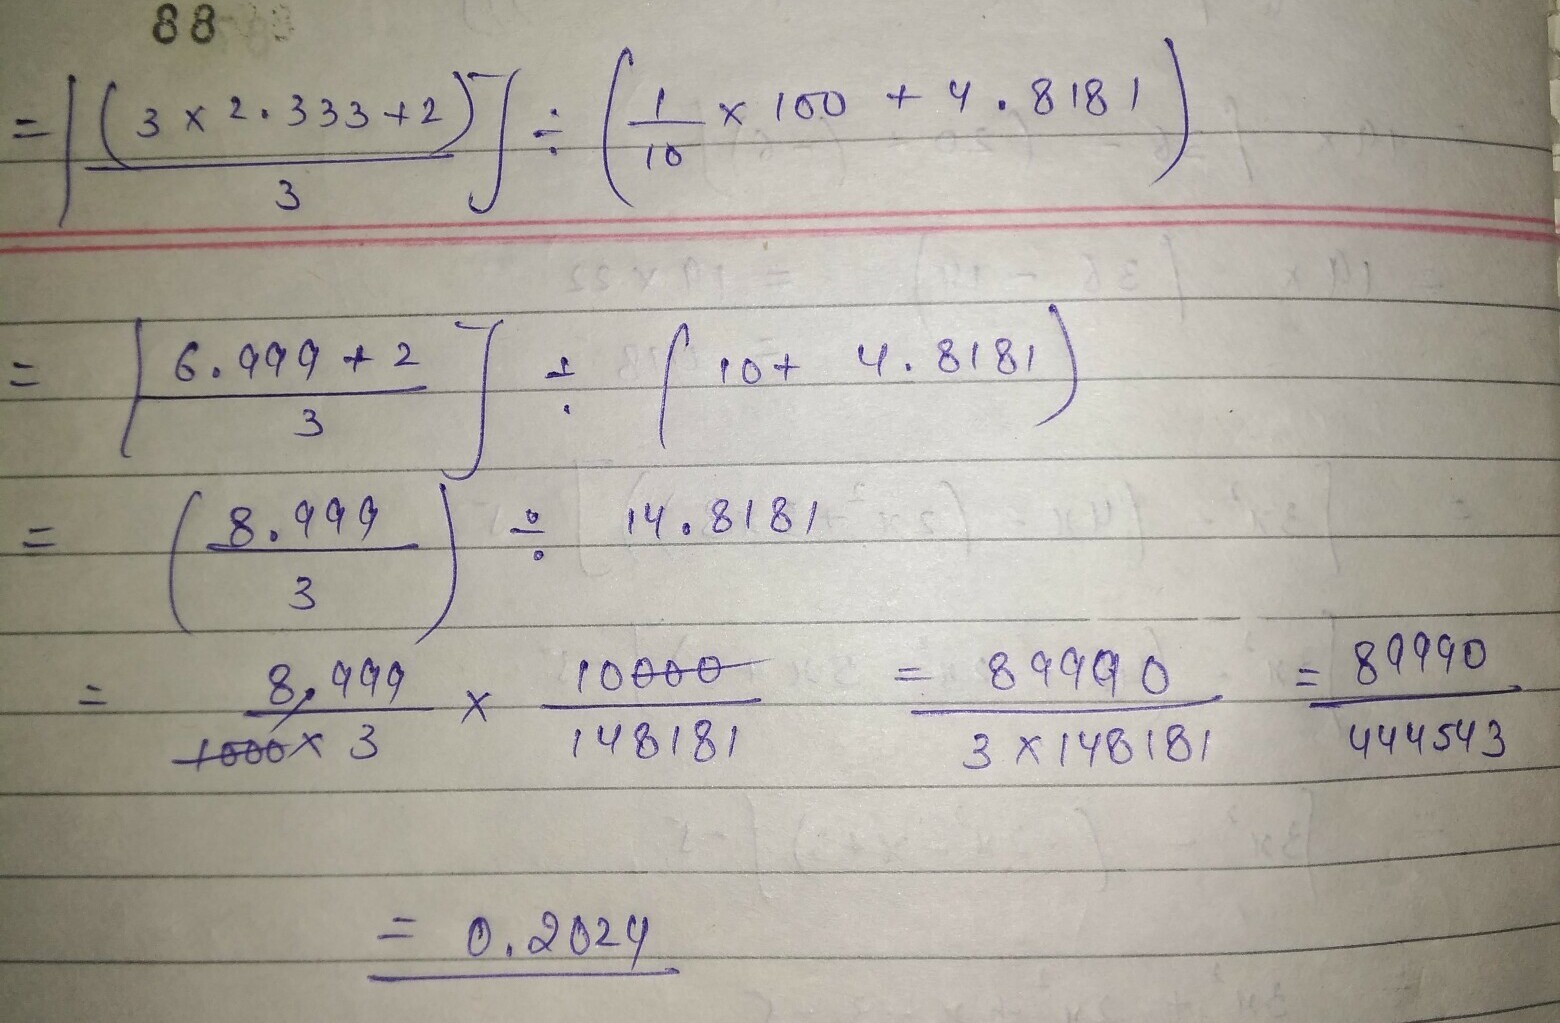 88
= [(3 x 2.333+2) / 3] ÷ (1/10 x 100 + 4.8181)
= [6.999 + 2 / 3] ÷ (10+ 4.8181)
= (8.999 / 3) ÷ 14.8181
= 8.999 / 1000 x 3 x 10000 / 148181 = 89990 / 3 x 148181 = 89990 / 444543
= 0.2024